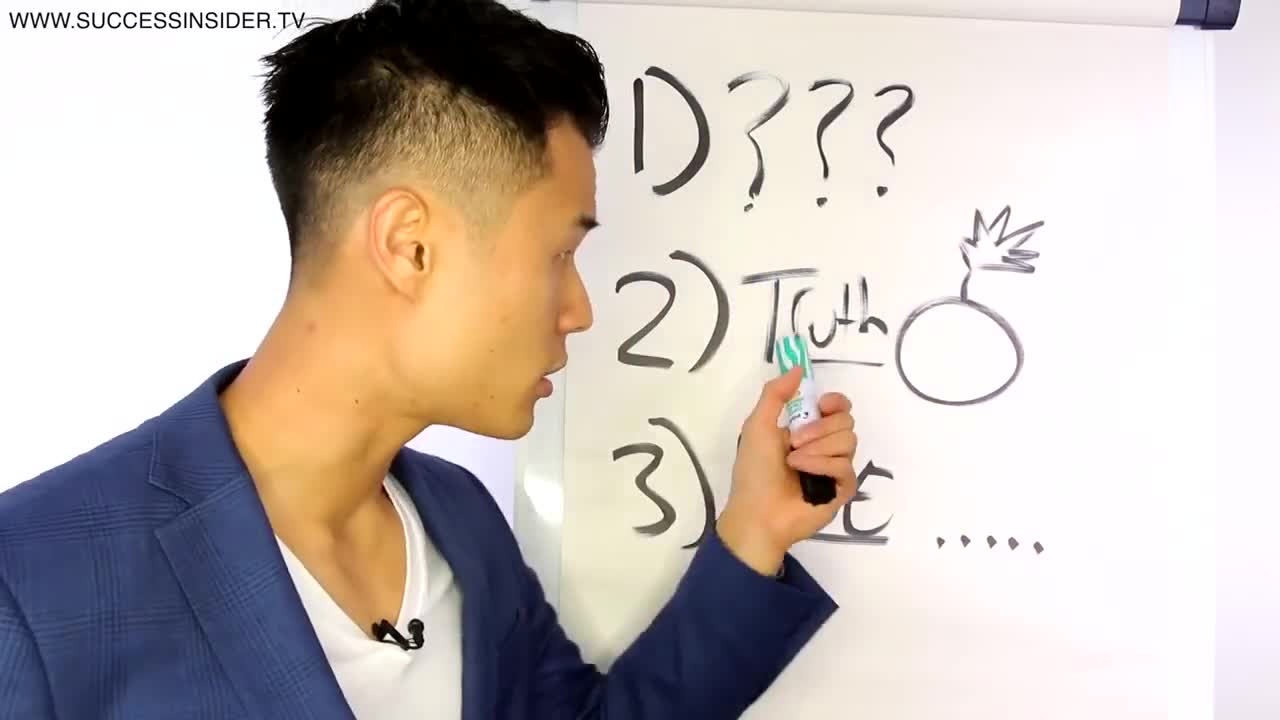 WWW.SUCCESSINSIDER.TV
1) ???
2) Truth
3) .....